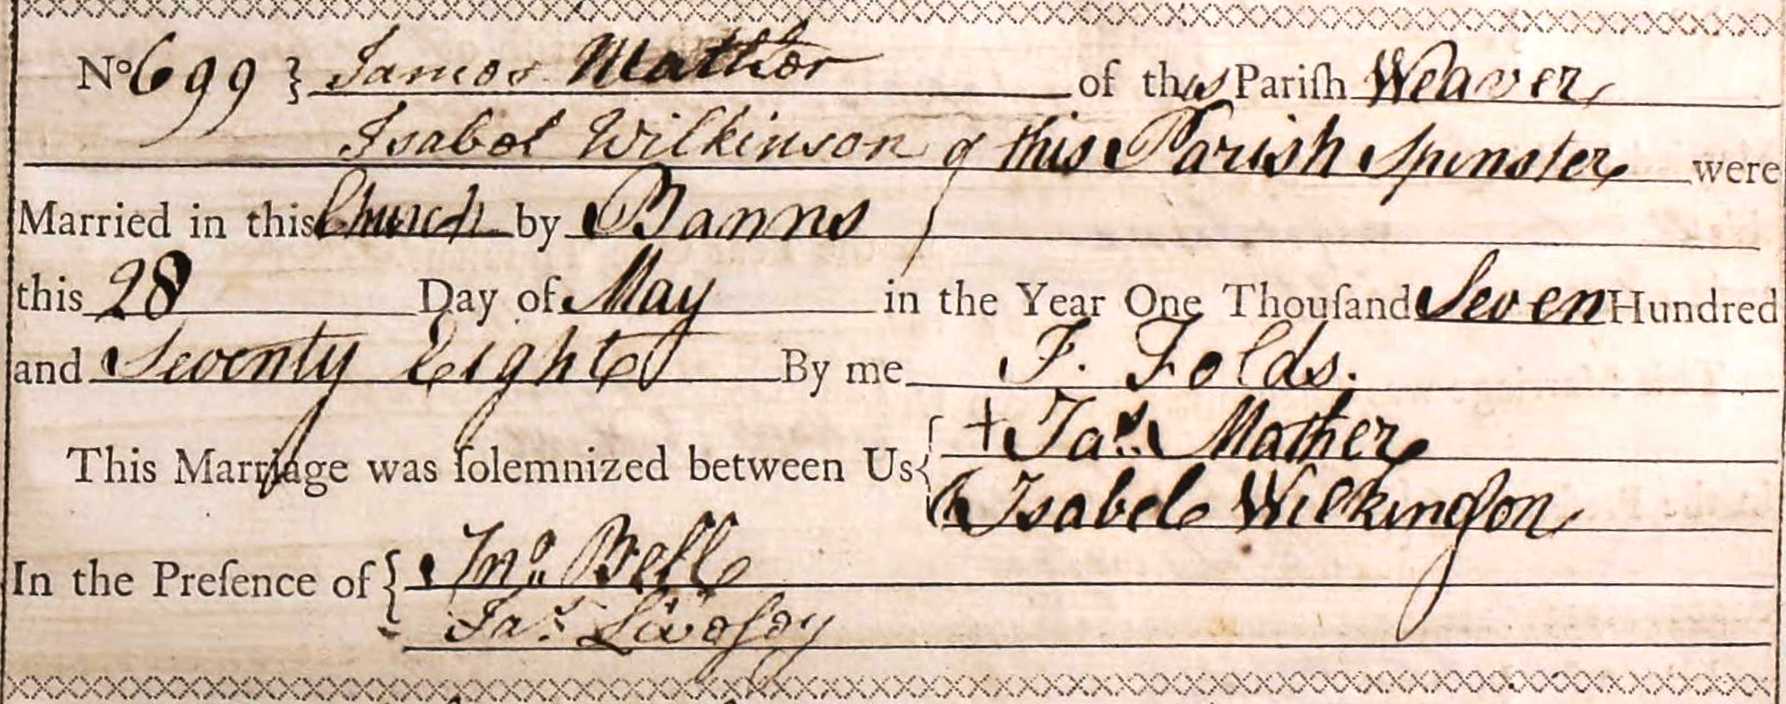 No 699 } James Mather of this Pariſh Weaver
Isabel Wilkinson of this Parish Spinster were
Married in this Church by Banns
this 28 Day of May in the Year One Thouſand Seven Hundred
and Seventy Eight By me J. Folds.
This Marriage was ſolemnized between Us { + Jas. Mather
Isabel Wilkinſon
In the Preſence of { Jno. Bell
Jas. Liveſey